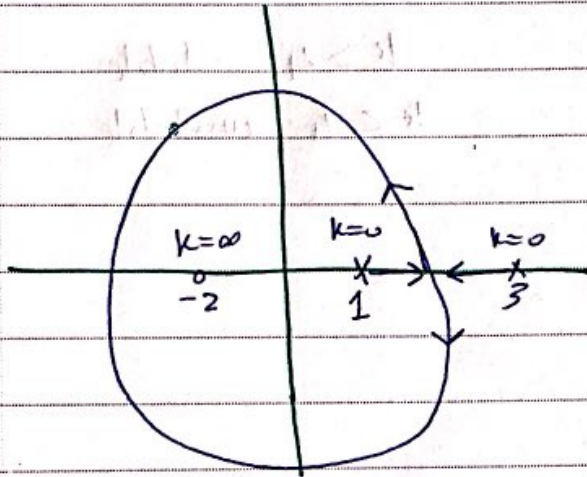 k=∞ k=0 k=0
-2 1 3